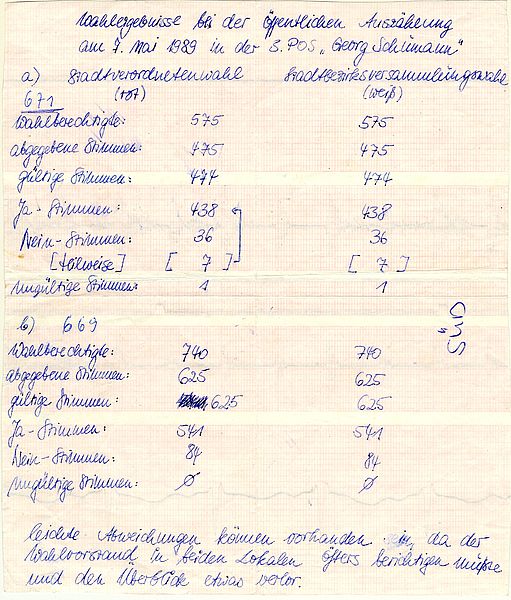 Wahlergebnisse bei der öffentlichen Auszählung
am 7. Mai 1989 in der S. POS „Georg Schümann"
a) Stadtverordnetenwahl Stadtbezirksversammlungswahl
671 (rot) (weiß)
Wahlberechtigte: 575 575
abgegebene Stimmen: 475 475
gültige Stimmen: 474 474
Ja-Stimmen: 438 438
Nein-Stimmen: 36 36
[teilweise] [ 7 ] [ 7 ]
ungültige Stimmen: 1 1
b) 669
SÜD
Wahlberechtigte: 740 740
abgegebene Stimmen: 625 625
gültige Stimmen: 625 625
Ja-Stimmen: 541 541
Nein-Stimmen: 84 84
ungültige Stimmen: ∅ ∅
leichte Abweichungen können vorhanden sein, da der
Wahlvorstand in beiden Lokalen öfters berichtigen mußte
und den Überblick etwas verlor.